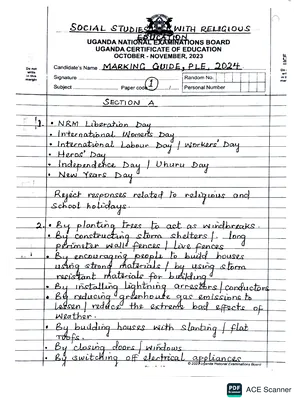 SOCIAL STUDIES WITH RELIGIOUS
EDUCATION
UGANDA NATIONAL EXAMINATIONS BOARD
UGANDA CERTIFICATE OF EDUCATION
OCTOBER - NOVEMBER, 2023
Do not write in this margin
Candidate's Name MARKING GUIDE, PLE, 2024
Signature Random No.
Subject Paper code 1 Personal Number
SECTION A
1. • NRM Liberation Day
• International Women's Day
• International Labour Day / Workers' Day
• Heros' Day
• Independence Day / Uhuru Day
• New Years Day
Reject responses related to religious and
school holidays.
2. • By planting trees to act as windbreaks.
• By constructing storm shelters / long
perimeter wall fences / live fences
• By encouraging people to build houses
using strong materials / by using storm
resistant materials for building
• By installing lightning arrestors / conductors
• By reducing greenhouse gas emissions to
lessen / reduce the extreme bad effects of
weather.
• By building houses with slanting / flat
roofs.
• By closing doors / windows
• By switching off electrical appliances
© 2023 Uganda National Examinations Board
PDF Scanner
ACE Scanner